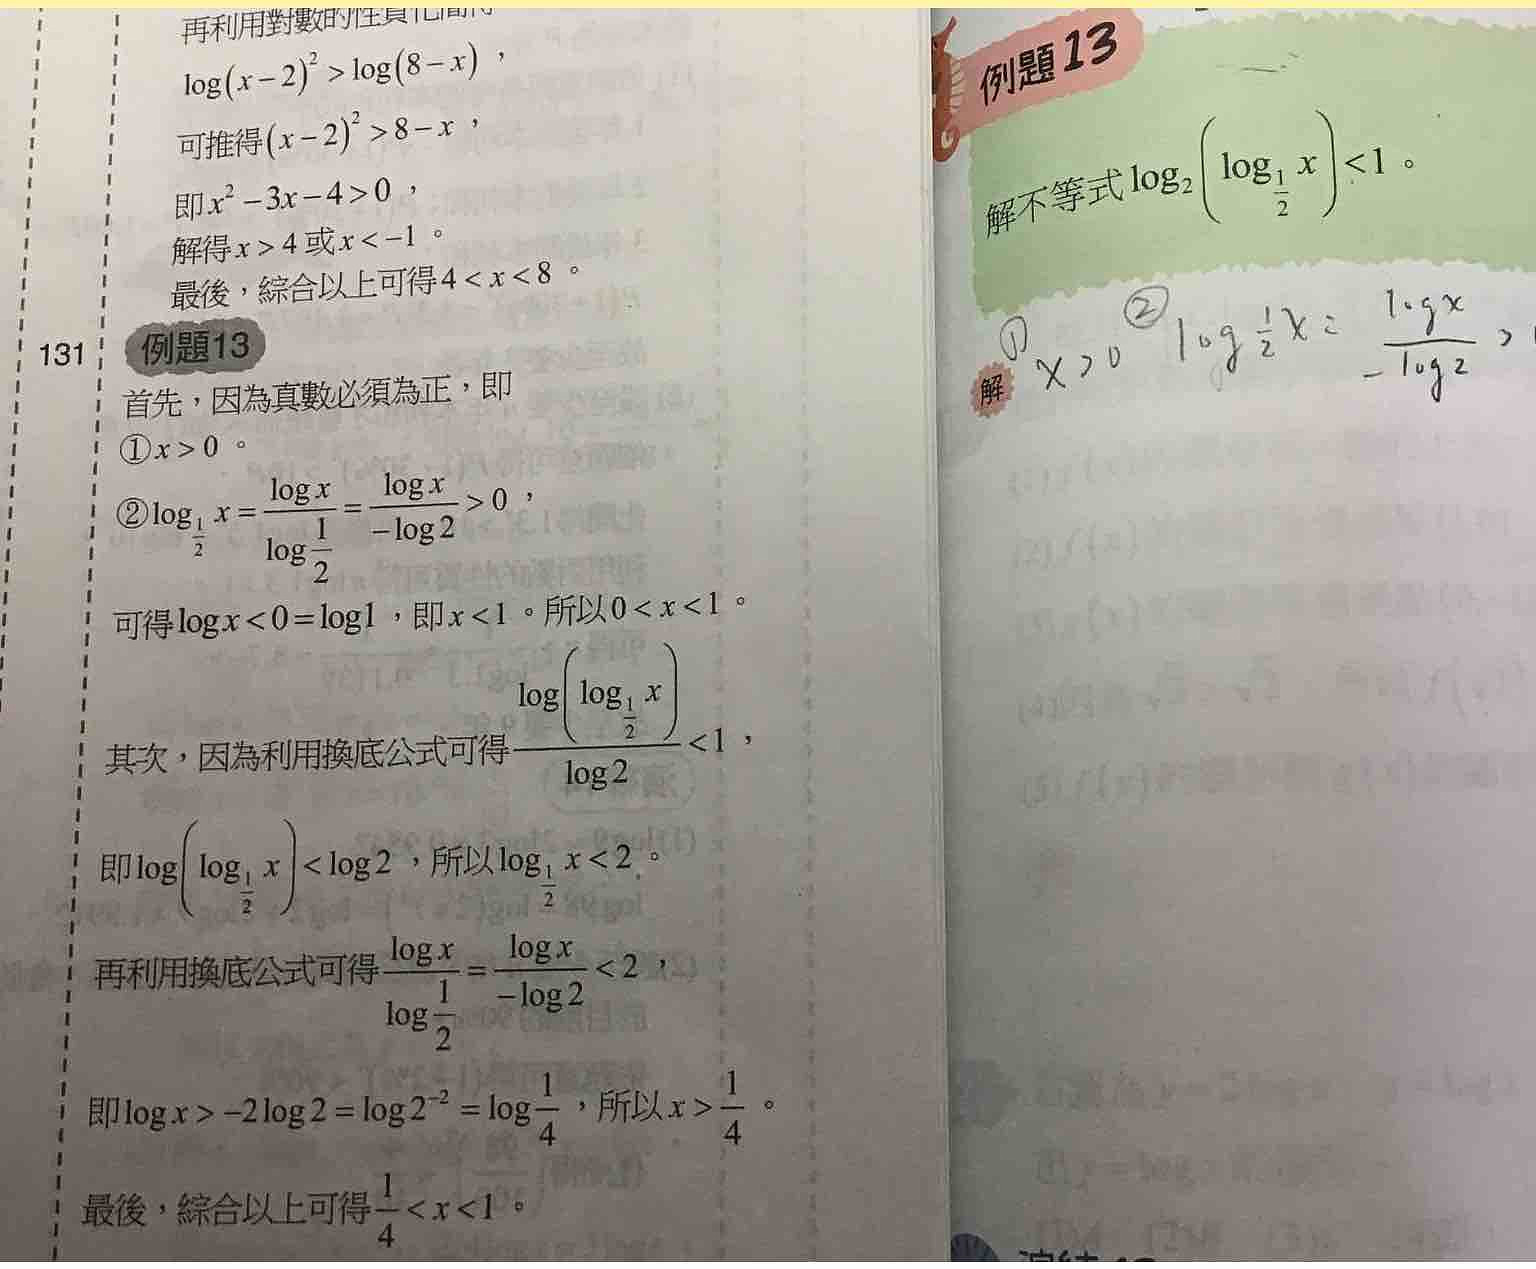 再利用對數的性質化簡得
log(x−2)²>log(8−x)，
可推得(x−2)²>8−x，
即x²−3x−4>0，
解得x>4或x<−1。
最後，綜合以上可得4<x<8。
131 例題13
首先，因為真數必須為正，即
①x>0。
②log_{1/2} x = log x / log 1/2 = log x / −log 2 > 0，
可得log x<0=log1，即x<1。所以0<x<1。
其次，因為利用換底公式可得 log(log_{1/2} x) / log 2 < 1，
即log(log_{1/2} x)<log2，所以log_{1/2} x<2。
再利用換底公式可得 log x / log 1/2 = log x / −log 2 < 2，
即log x>−2log2=log2⁻²=log 1/4，所以x> 1/4。
最後，綜合以上可得 1/4<x<1。
例題13
解不等式log₂(log_{1/2} x)<1。
解 ① x>0 ② log 1/2 x = log x / −log 2 >